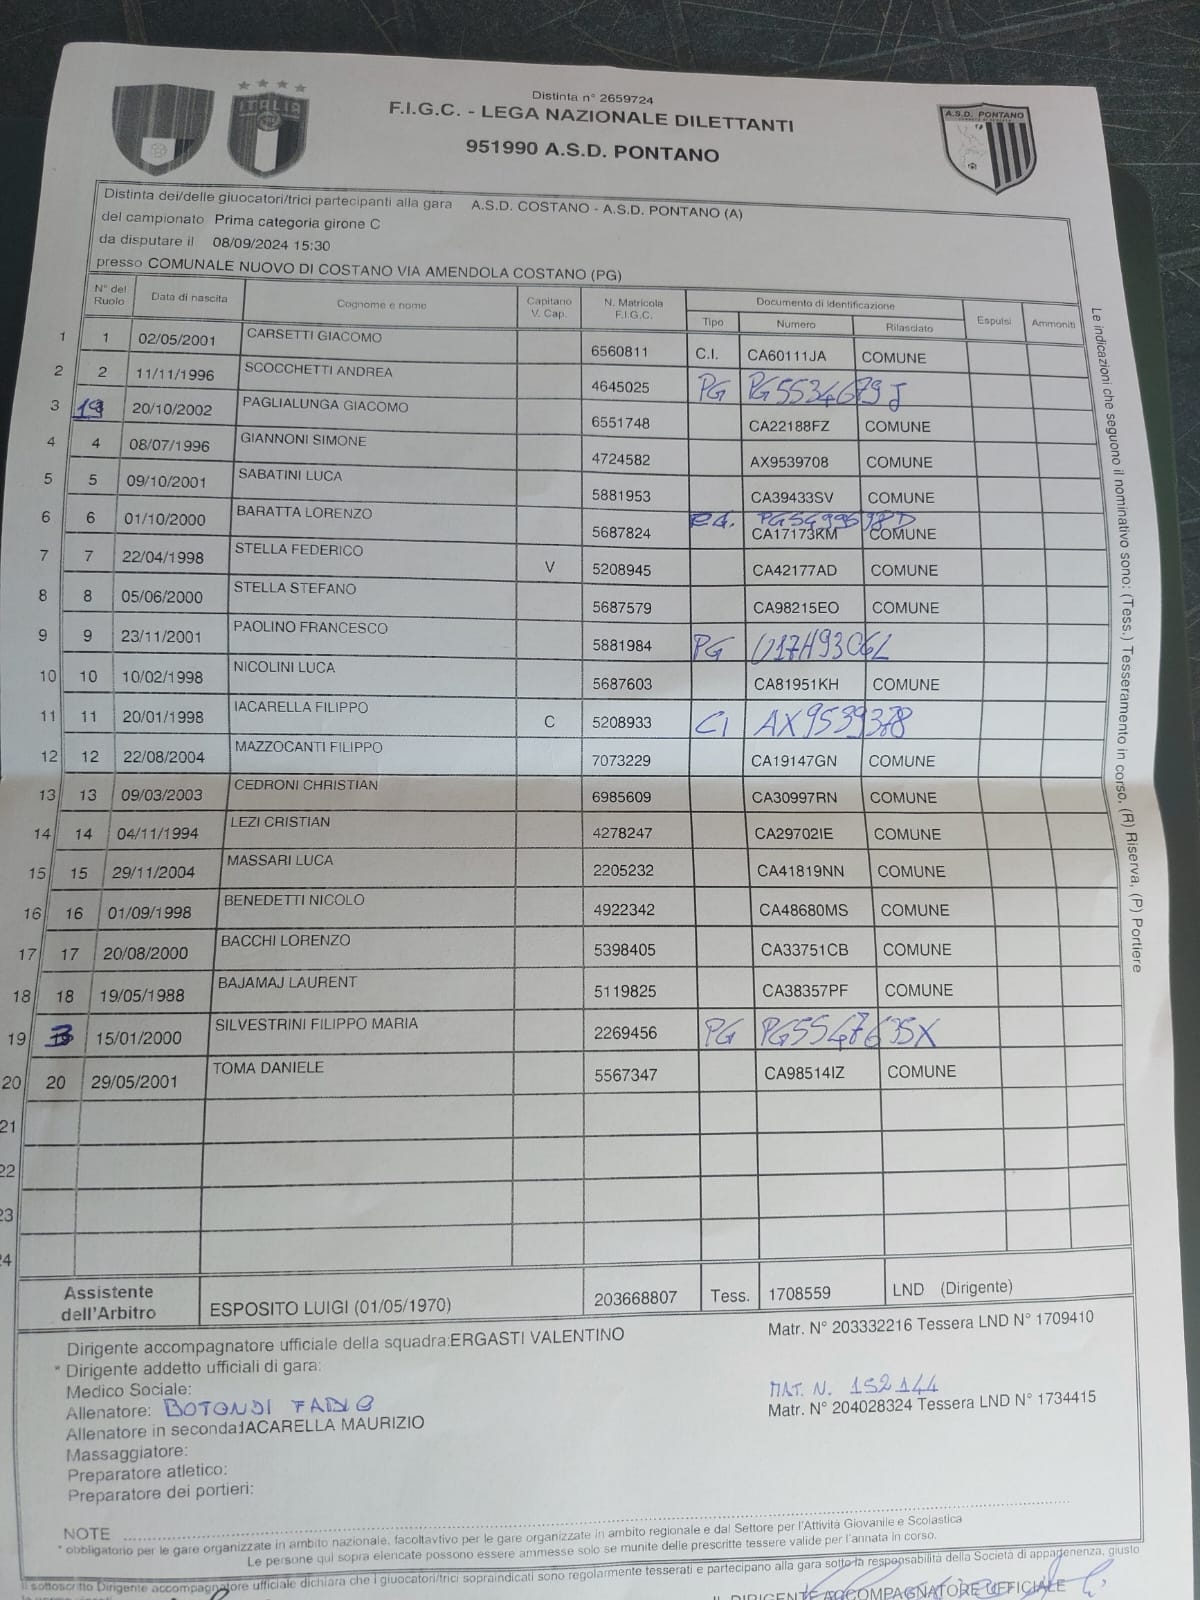 Distinta n° 2659724
F.I.G.C. - LEGA NAZIONALE DILETTANTI
951990 A.S.D. PONTANO
ITALIA
A.S.D. PONTANO
Distinta dei/delle giuocatori/trici partecipanti alla gara A.S.D. COSTANO - A.S.D. PONTANO (A)
del campionato Prima categoria girone C
da disputare il 08/09/2024 15:30
presso COMUNALE NUOVO DI COSTANO VIA AMENDOLA COSTANO (PG)
N° del Ruolo Data di nascita Cognome e nome Capitano V. Cap. N. Matricola F.I.G.C. Documento di Identificazione Espulsi Ammoniti
Tipo Numero Rilasciato
1 1 02/05/2001 CARSETTI GIACOMO 6560811 C.I. CA60111JA COMUNE
2 2 11/11/1996 SCOCCHETTI ANDREA 4645025 PG PG5534679J
3 19 20/10/2002 PAGLIALUNGA GIACOMO 6551748 CA22188FZ COMUNE
4 4 08/07/1996 GIANNONI SIMONE 4724582 AX9539708 COMUNE
5 5 09/10/2001 SABATINI LUCA 5881953 CA39433SV COMUNE
6 6 01/10/2000 BARATTA LORENZO 5687824 CA17173KM COMUNE
7 7 22/04/1998 STELLA FEDERICO V 5208945 CA42177AD COMUNE
8 8 05/06/2000 STELLA STEFANO 5687579 CA98215EO COMUNE
9 9 23/11/2001 PAOLINO FRANCESCO 5881984 PG U17H9306L
10 10 10/02/1998 NICOLINI LUCA 5687603 CA81951KH COMUNE
11 11 20/01/1998 IACARELLA FILIPPO C 5208933 CI AX9539378
12 12 22/08/2004 MAZZOCANTI FILIPPO 7073229 CA19147GN COMUNE
13 13 09/03/2003 CEDRONI CHRISTIAN 6985609 CA30997RN COMUNE
14 14 04/11/1994 LEZI CRISTIAN 4278247 CA29702IE COMUNE
15 15 29/11/2004 MASSARI LUCA 2205232 CA41819NN COMUNE
16 16 01/09/1998 BENEDETTI NICOLO 4922342 CA48680MS COMUNE
17 17 20/08/2000 BACCHI LORENZO 5398405 CA33751CB COMUNE
18 18 19/05/1988 BAJAMAJ LAURENT 5119825 CA38357PF COMUNE
19 3 15/01/2000 SILVESTRINI FILIPPO MARIA 2269456 PG PG5547635X
20 20 29/05/2001 TOMA DANIELE 5567347 CA98514IZ COMUNE
21
22
23
24
Le indicazioni che seguono il nominativo sono: (Tess.) Tesseramento in corso, (R) Riserva, (P) Portiere
Assistente dell'Arbitro ESPOSITO LUIGI (01/05/1970) 203668807 Tess. 1708559 LND (Dirigente)
Dirigente accompagnatore ufficiale della squadra:ERGASTI VALENTINO Matr. N° 203332216 Tessera LND N° 1709410
* Dirigente addetto ufficiali di gara:
Medico Sociale:
Allenatore: BOTONDI FABIO MAT. N. 152144
Allenatore in seconda:IACARELLA MAURIZIO Matr. N° 204028324 Tessera LND N° 1734415
Massaggiatore:
Preparatore atletico:
Preparatore dei portieri:
NOTE
* obbligatorio per le gare organizzate in ambito nazionale, facoltavtivo per le gare organizzate in ambito regionale e dal Settore per l'Attività Giovanile e Scolastica
Le persone qui sopra elencate possono essere ammesse solo se munite delle prescritte tessere valide per l'annata in corso.
Il sottoscritto Dirigente accompagnatore ufficiale dichiara che i giuocatori/trici sopraindicati sono regolarmente tesserati e partecipano alla gara sotto la responsabilità della Società di appartenenza, giusto
IL DIRIGENTE ACCOMPAGNATORE UFFICIALE